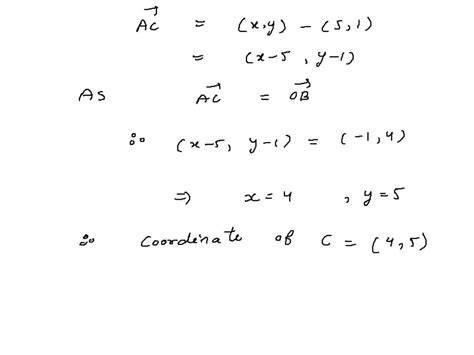 AC→ = (x,y) - (5,1)
= (x-5, y-1)
As AC→ = OB→
∴ (x-5, y-1) = (-1,4)
⇒ x=4, y=5
∴ Coordinate of C = (4,5)